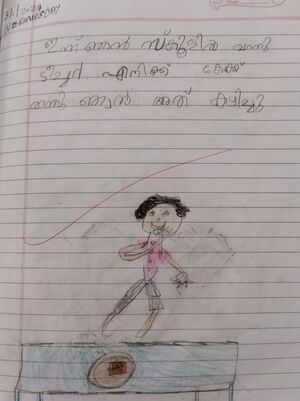 31/1/2024
WEDNESDAY
ഇന്ന് ഞാൻ സ്കൂളിൽ വന്നു
ടീച്ചർ എനിക്ക് കേക്ക്
തന്നു ഞാൻ അത് കഴിച്ചു